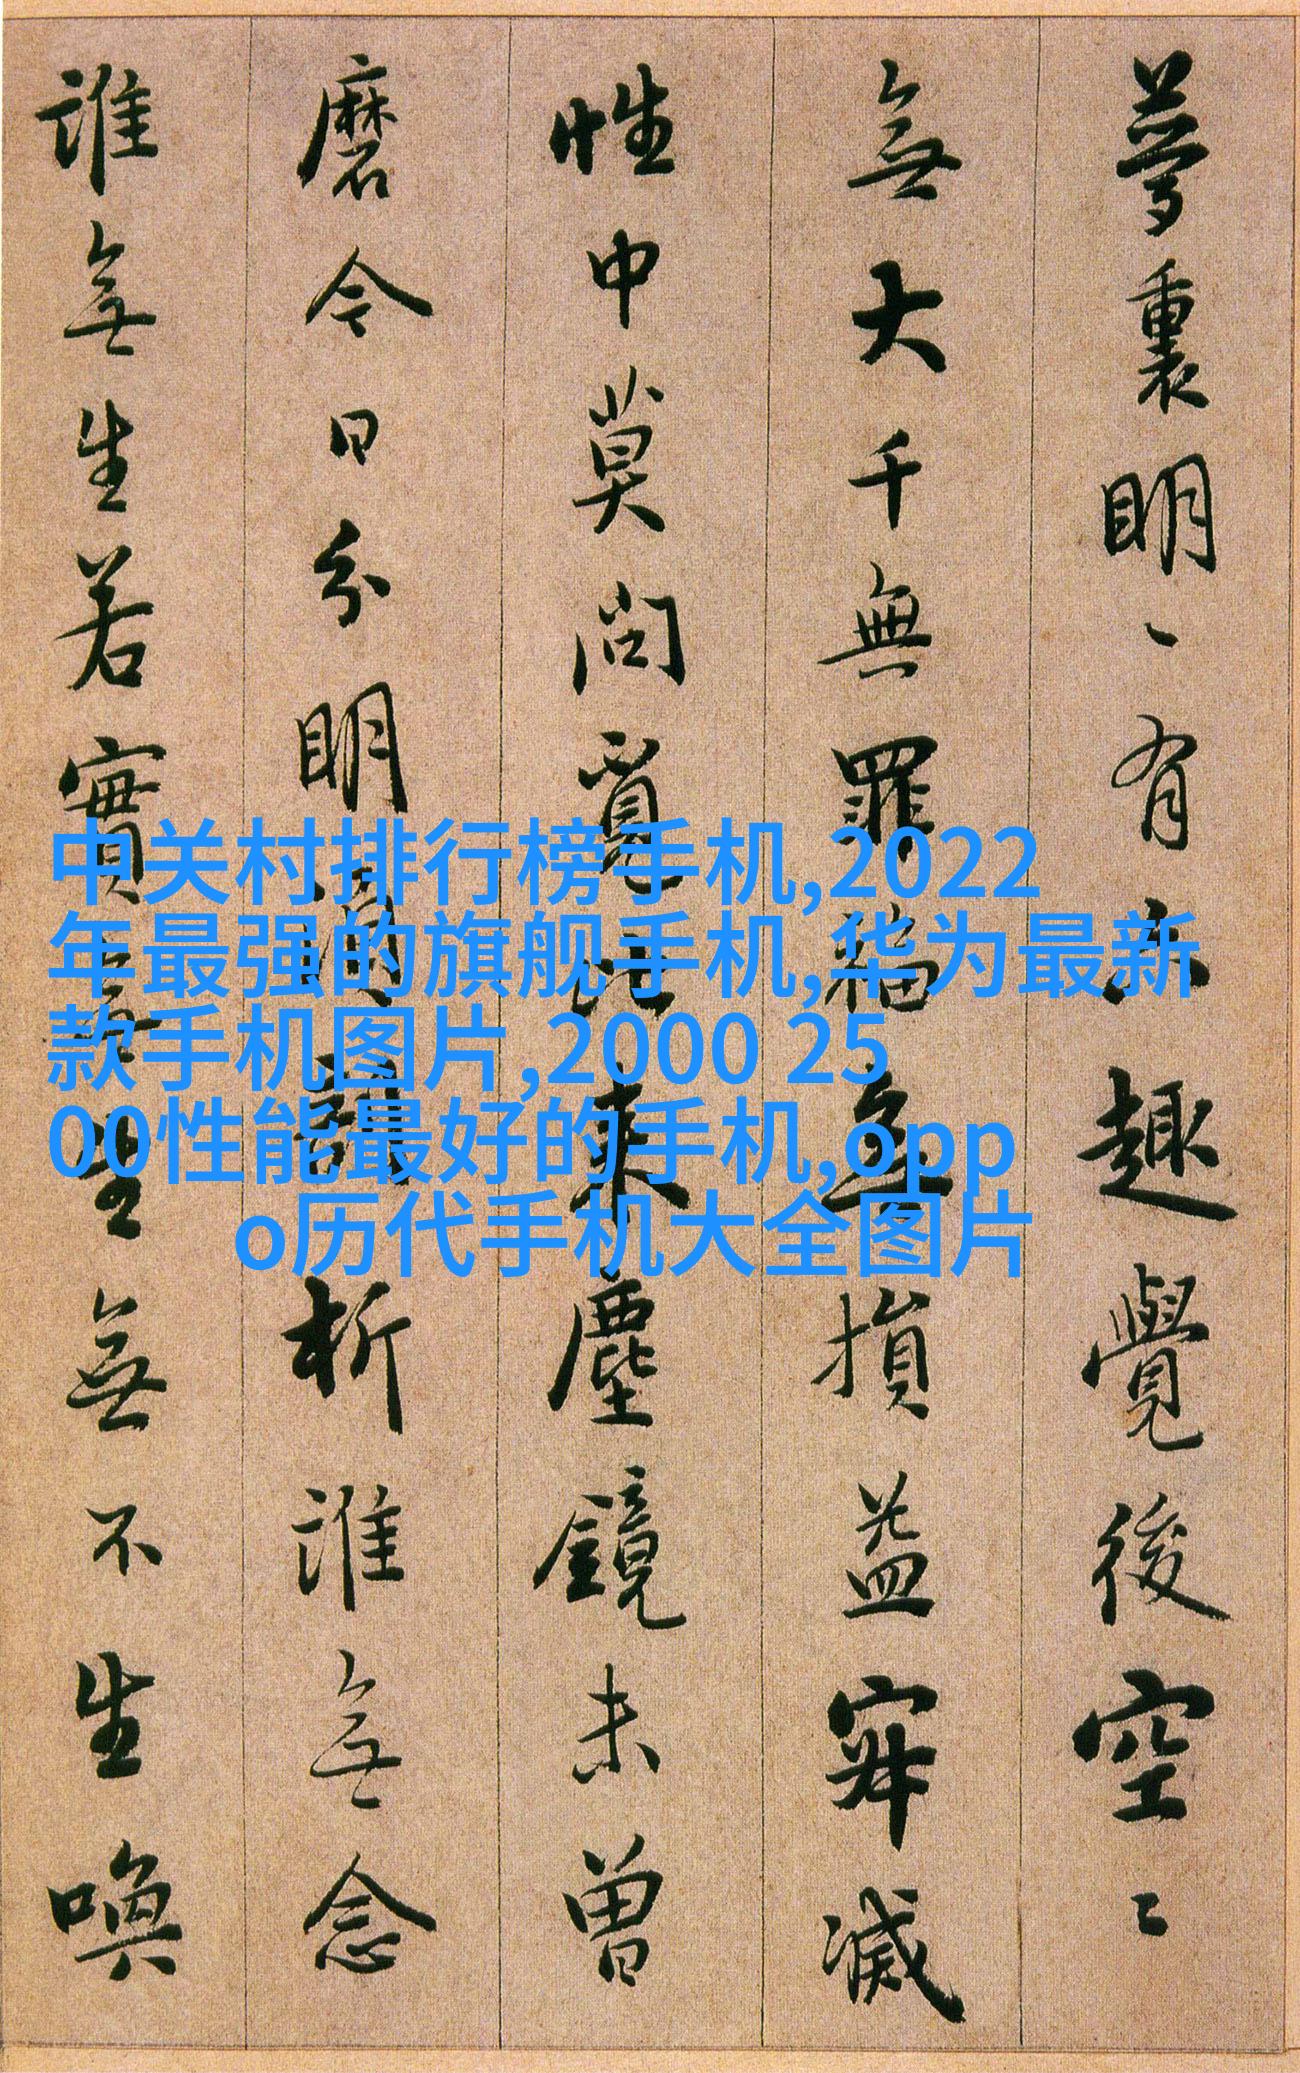 夢裏明〻有六趣覺後空〻
無大千無罪福無損益寂滅
性中莫問覓比來塵鏡未曾
磨今日分明須剖析誰無念
誰無生若實無生無不生喚
中关村排行榜手机,2022
年最强的旗舰手机,华为最新
款手机图片,2000 25
00性能最好的手机,opp
o历代手机大全图片